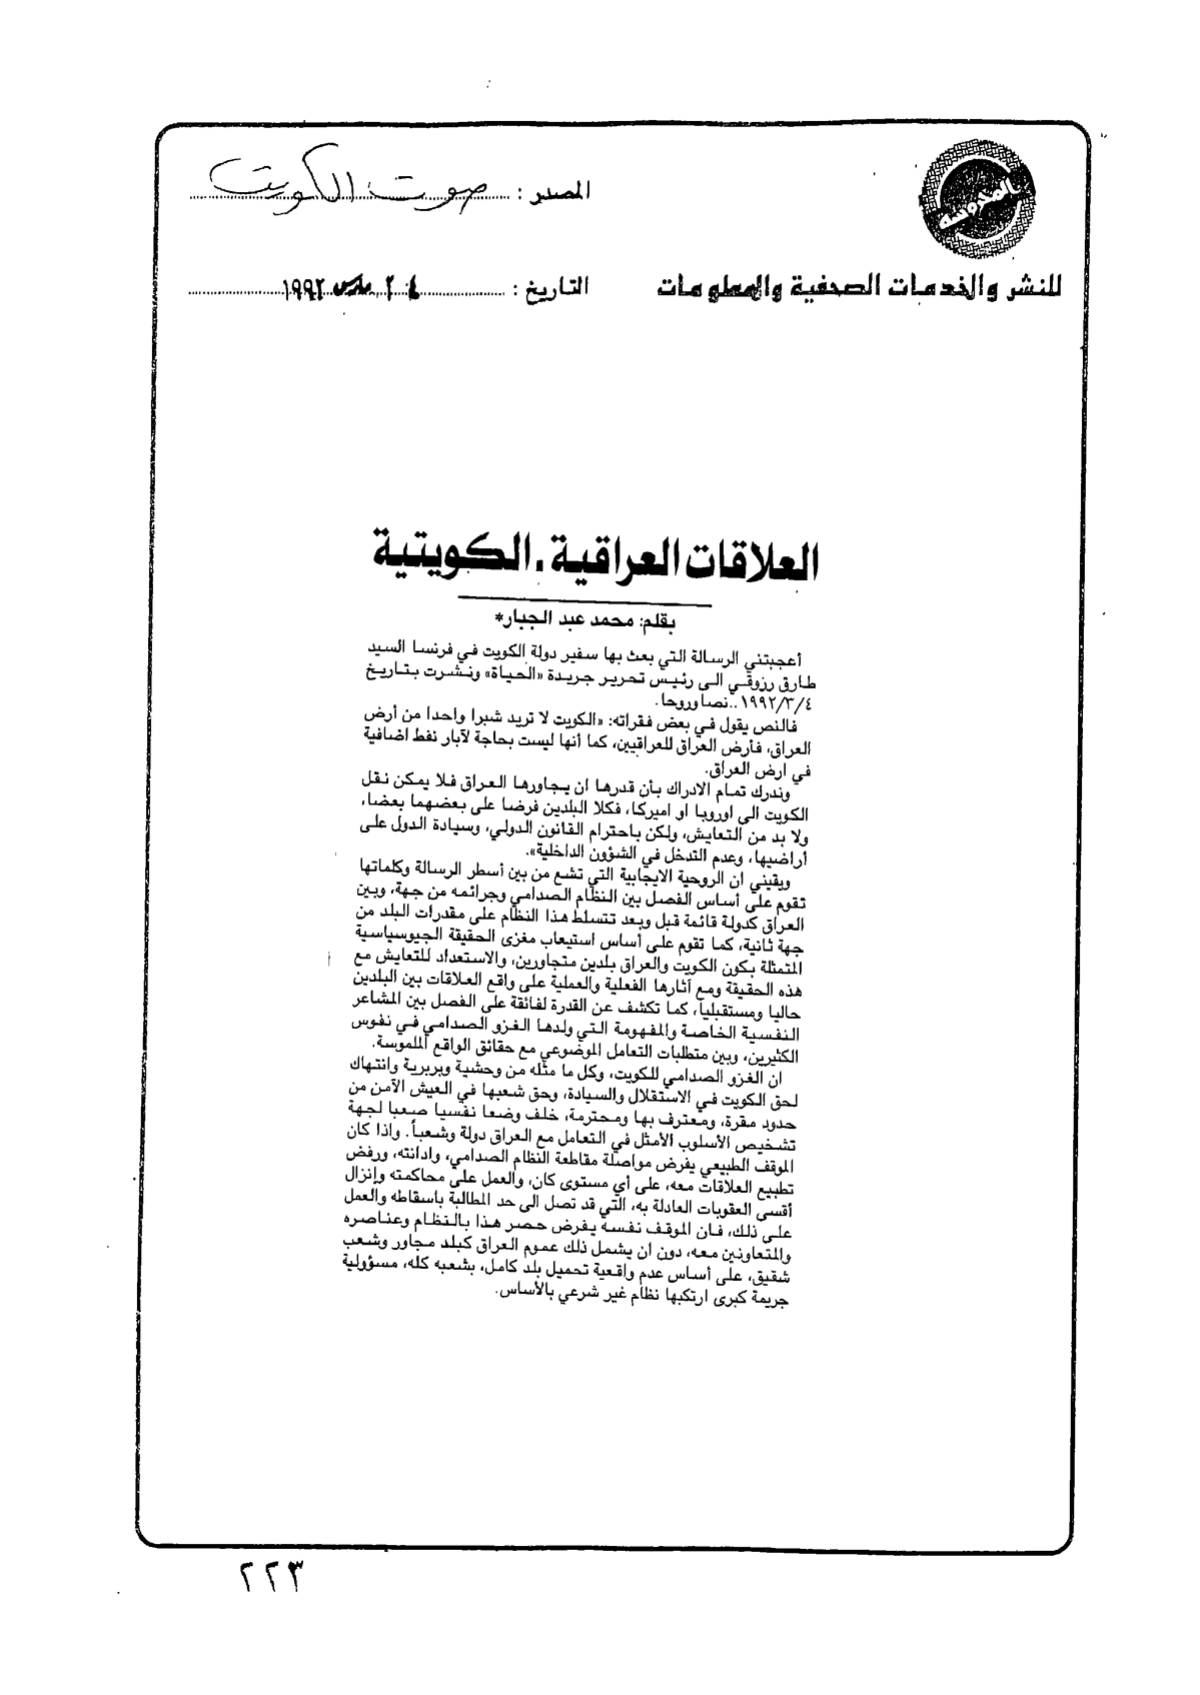 المصدر : صوت الكويت
للنشر والخدمات الصحفية والمعلومات
التاريخ : ٢٤ مارس ١٩٩٢
العلاقات العراقية . الكويتية
بقلم: محمد عبد الجبار*
أعجبتني الرسالة التي بعث بها سفير دولة الكويت في فرنسا السيد
طارق رزوقي الى رئيس تحرير جريدة «الحياة» ونشرت بتاريخ
١٩٩٢/٣/٤.. نصا وروحا.
فالنص يقول في بعض فقراته: «الكويت لا تريد شبرا واحدا من أرض
العراق، فأرض العراق للعراقيين، كما أنها ليست بحاجة لآبار نفط اضافية
في ارض العراق.
وندرك تمام الادراك بأن قدرها ان يجاورها العراق فلا يمكن نقل
الكويت الى اوروبا او اميركا، فكلا البلدين فرضا على بعضهما بعضا،
ولا بد من التعايش، ولكن باحترام القانون الدولي، وسيادة الدول على
أراضيها، وعدم التدخل في الشؤون الداخلية».
ويقيني ان الروحية الايجابية التي تشع من بين أسطر الرسالة وكلماتها
تقوم على أساس الفصل بين النظام الصدامي وجرائمه من جهة، وبين
العراق كدولة قائمة قبل وبعد تتسلط هذا النظام على مقدرات البلد من
جهة ثانية، كما تقوم على أساس استيعاب مغزى الحقيقة الجيوسياسية
المتمثلة بكون الكويت والعراق بلدين متجاورين، والاستعداد للتعايش مع
هذه الحقيقة ومع آثارها الفعلية والعملية على واقع العلاقات بين البلدين
حاليا ومستقبلياً، كما تكشف عن القدرة لفائقة على الفصل بين المشاعر
النفسية الخاصة والمفهومة التي ولدها الغزو الصدامي في نفوس
الكثيرين، وبين متطلبات التعامل الموضوعي مع حقائق الواقع الملموسة.
ان الغزو الصدامي للكويت، وكل ما مثله من وحشية وبربرية وانتهاك
لحق الكويت في الاستقلال والسيادة، وحق شعبها في العيش الآمن من
حدود مقرة، ومعترف بها ومحترمة، خلف وضعا نفسيا صعبا لجهة
تشخيص الأسلوب الأمثل في التعامل مع العراق دولة وشعباً. واذا كان
الموقف الطبيعي يفرض مواصلة مقاطعة النظام الصدامي، وادانته، ورفض
تطبيع العلاقات معه، على أي مستوى كان، والعمل على محاكمته وإنزال
أقسى العقوبات العادلة به، التي قد تصل الى حد المطالبة باسقاطه والعمل
على ذلك، فان الموقف نفسه يفرض حصر هذا بالنظام وعناصره
والمتعاونين معه، دون ان يشمل ذلك عموم العراق كبلد مجاور وشعب
شقيق، على أساس عدم واقعية تحميل بلد كامل، بشعبه كله، مسؤولية
جريمة كبرى ارتكبها نظام غير شرعي بالأساس.
٢٢٣